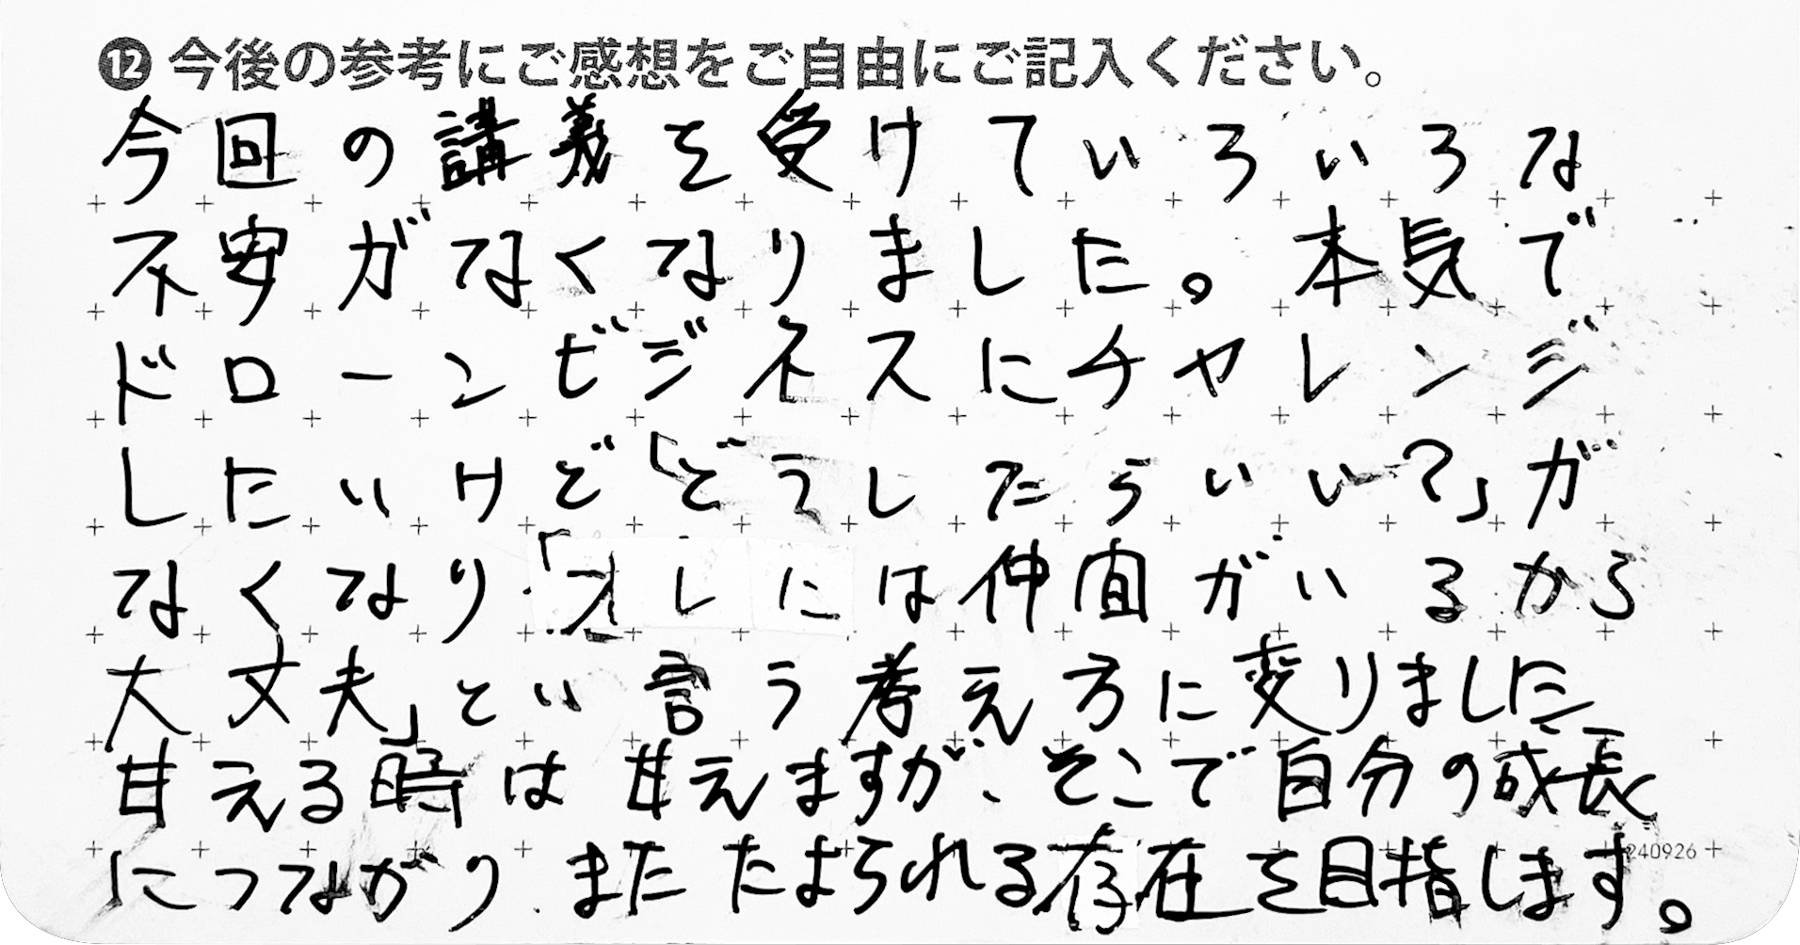 ⓬今後の参考にご感想をご自由にご記入ください。
今回の講義を受けていろいろな
不安がなくなりました。本気で
ドローンビジネスにチャレンジ
したいけど「どうしたらいい?」が
なくなり「オレには仲間がいるから
大丈夫」とい言う考え方に変りました
甘える時は甘えますが、そこで自分の成長
につながり、またたよられる存在を目指します。
240926